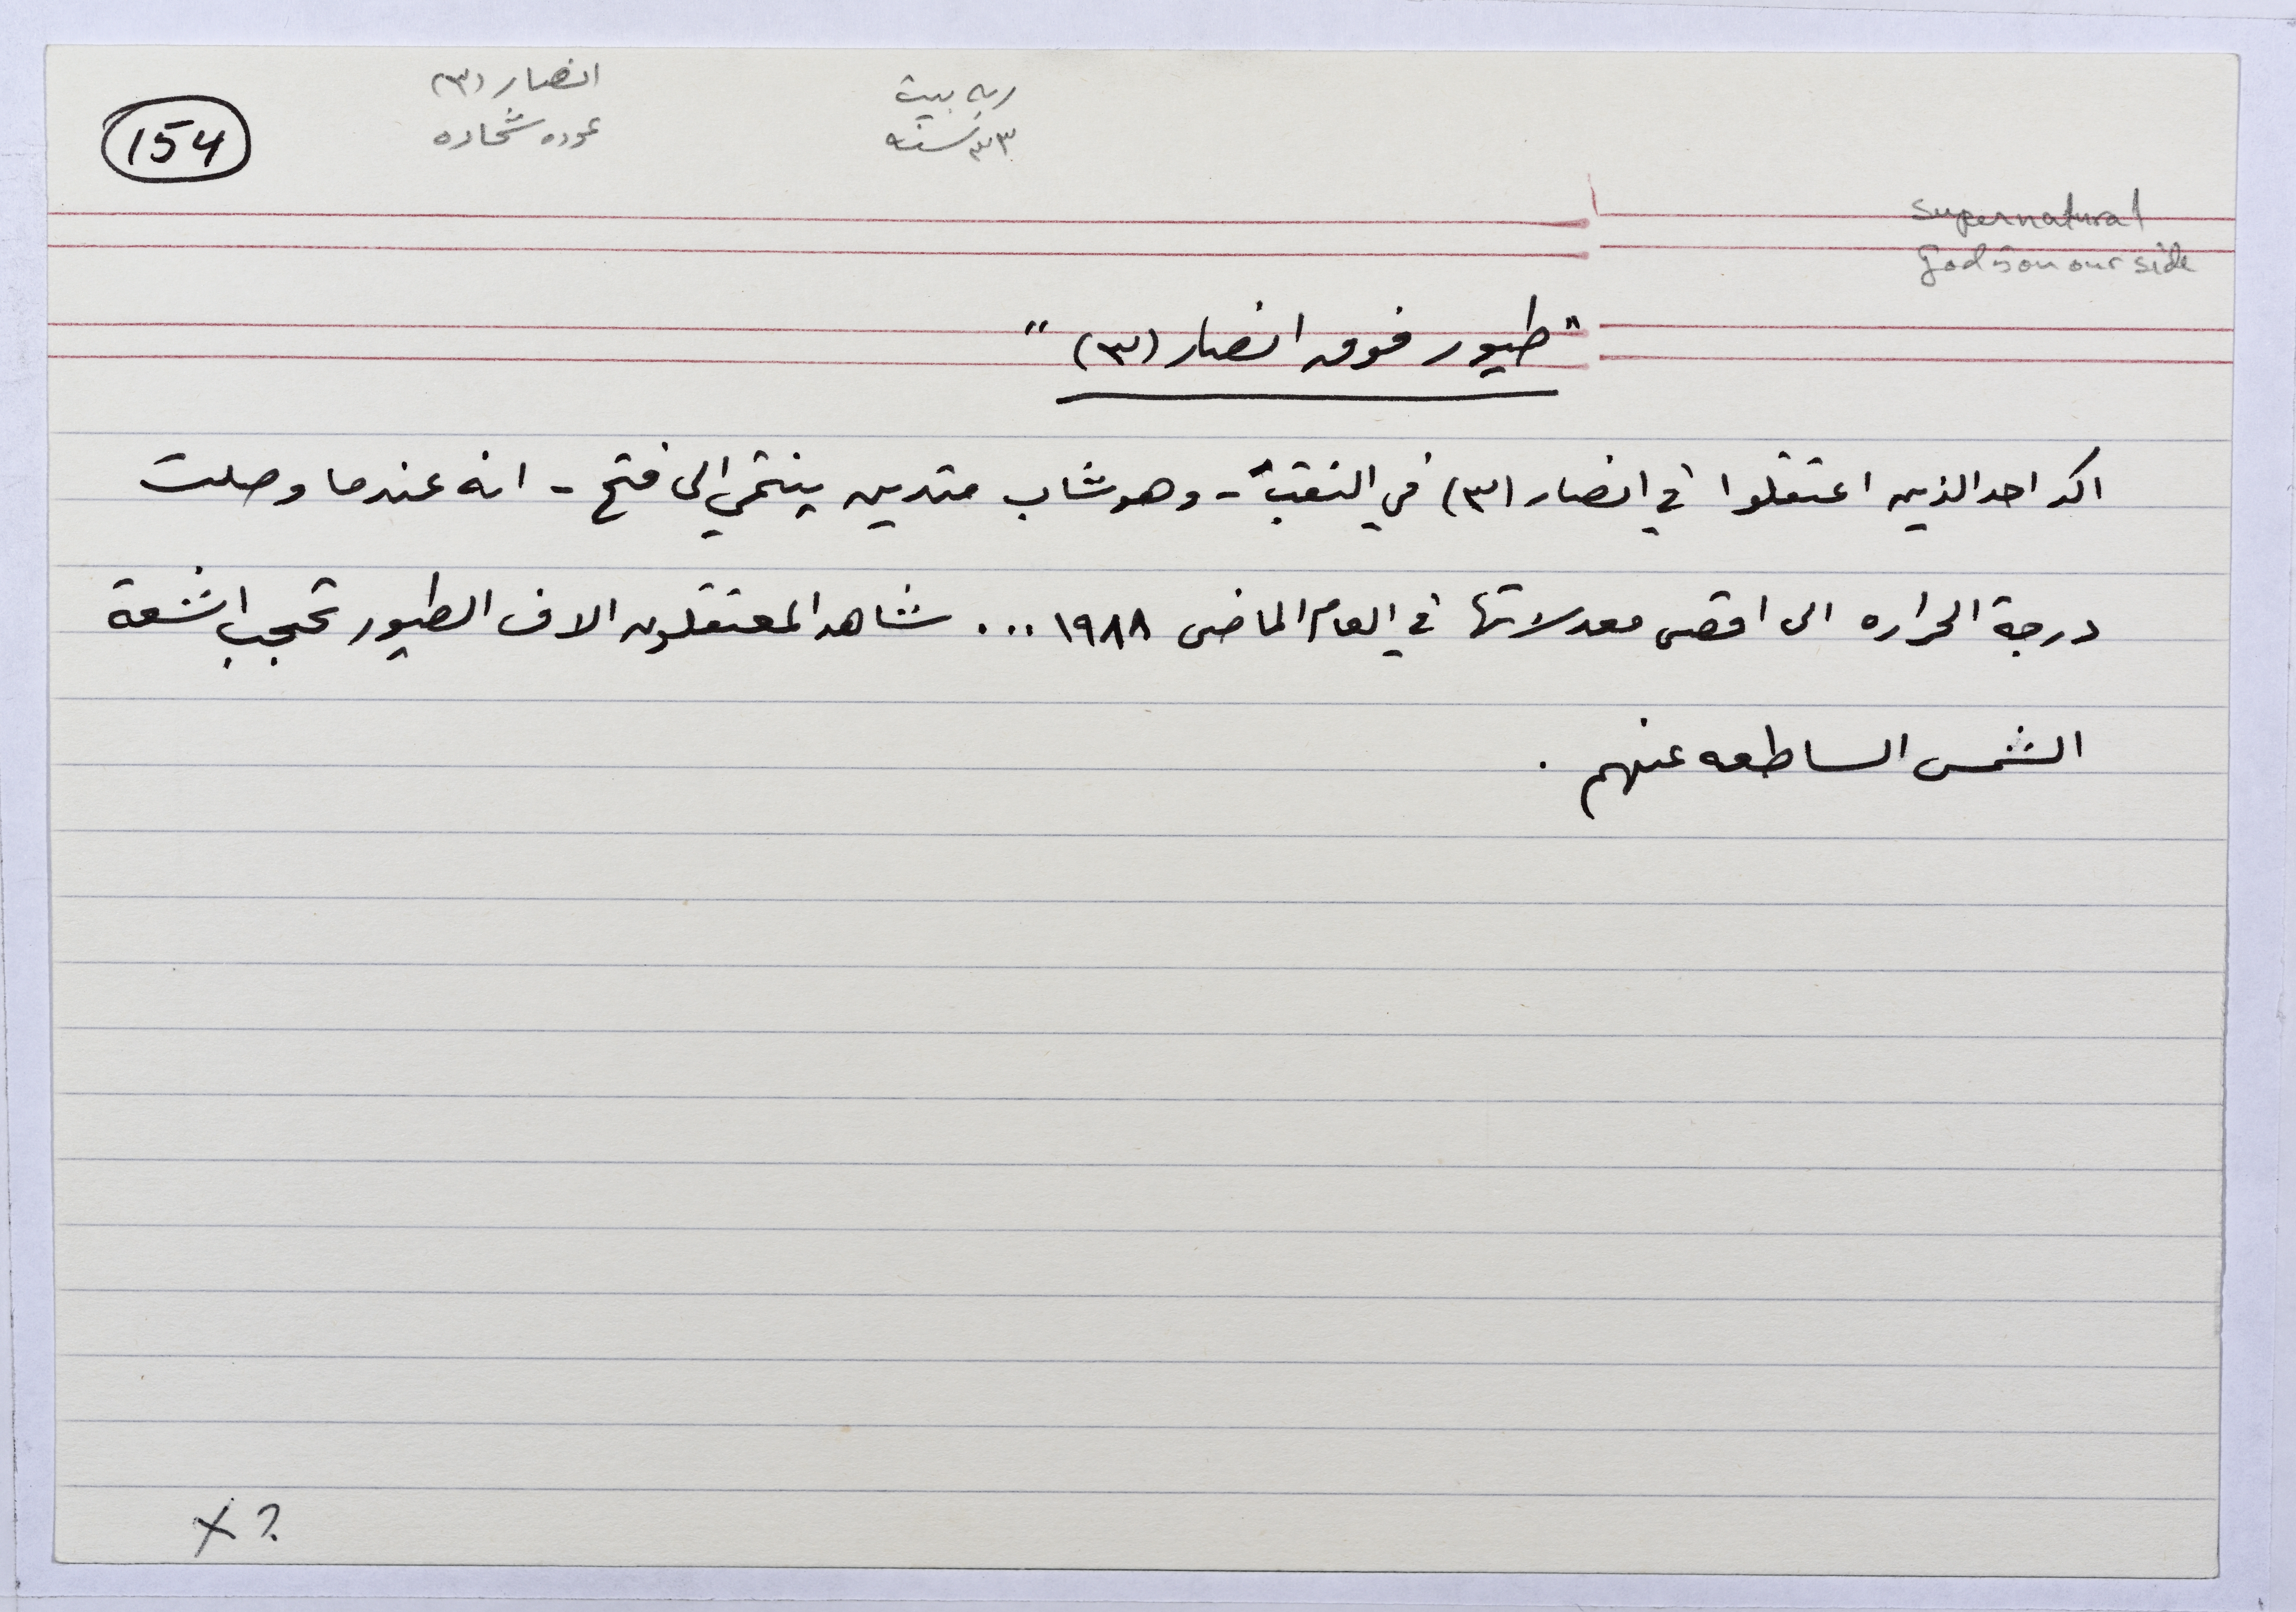 154
انصار (٣)
عوده شحاده
ربه بيت
٣٣ سنه
supernatural
God is on our side
"طيور فوق انصار (٣)"
اكد احد الذين اعتقلوا في انصار (٣) في النقب - وهو شاب متدين ينتمي الى فتح - انه عندما وصلت
درجة الحراره الى اقصى معدلاتها في العام الماضي ١٩٨٨ ... شاهد المعتقلون الاف الطيور تحجب اشعة
الشمس الساطعه عنهم .
X ?